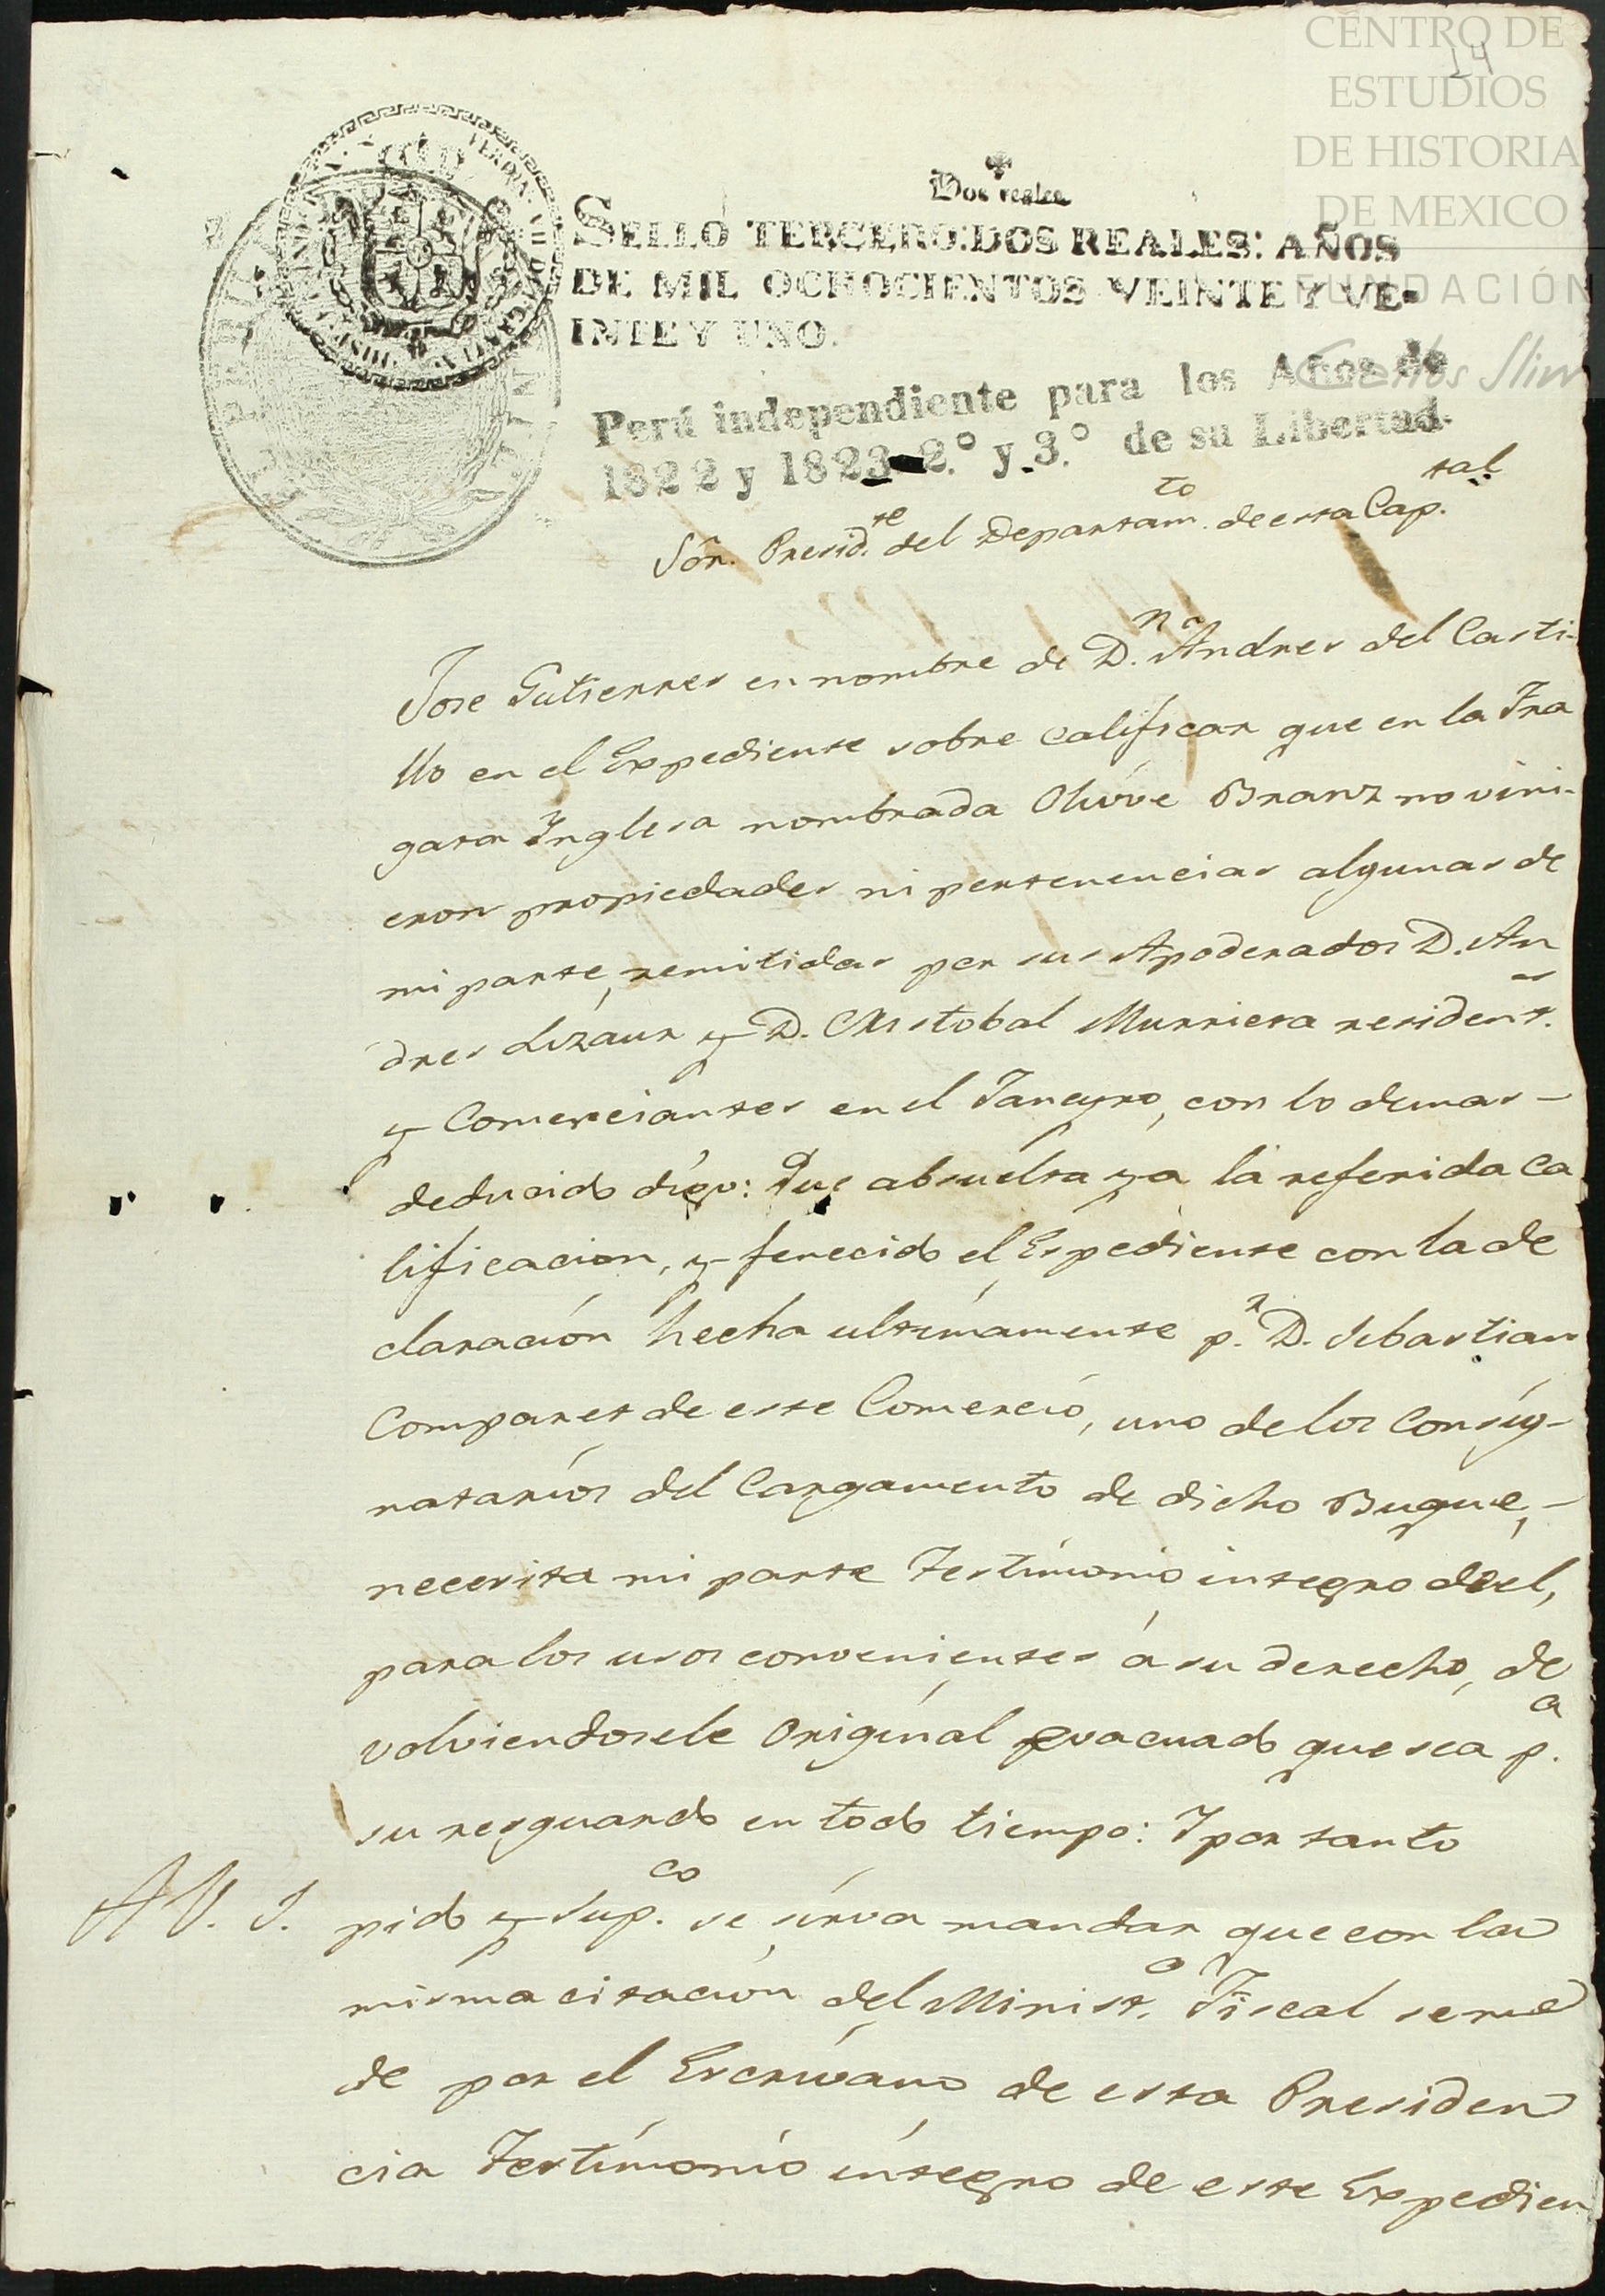 CENTRO DE
ESTUDIOS
DE HISTORIA
DE MEXICO
FUNDACIÓN
Carlos Slim
14
Dos reales
SELLO TERCERO: DOS REALES: AÑOS
DE MIL OCHOCIENTOS VEINTE Y VE-
INTE Y UNO.
Perú independiente para los Años de
1822 y 1823 2.º y 3.º de su Libertad.
Sôr. Presid.te del Departam.to de esta Cap.tal
Jose Gutierres en nombre de D.n Andres del Casti-
llo en el Expediente sobre calificar que en la Fra
gata Inglesa nombrada Olivve Branz no vini-
eron propiedades ni pertenencias algunas de
mi parte, remitidas por sus Apoderados D. An
dres Lizaur y D. Cristobal Murrieta resident.s
y Comerciantes en el Janeyro, con lo demas -
deducido digo: Que absuelta ya la referida ca
lificacion, y fenecido el Espediente con la de
claración hecha ultimamente p.r D. Sebastian
Comparet de este Comercio, uno de los Consig-
natarios del Cargamento de dicho Buque, -
necesita mi parte Testimonio integro de el,
para los usos convenientes á su derecho, de
volviendosele Original evacuado que sea p.a
su resguardo en todo tiempo: Y por tanto
A V. S. pido y sup.co se sirva mandar que con la
misma citacion del Minist.o Fiscal se me
de por el Escrivano de esta Presiden
cia Testimonio integro de este Expedien